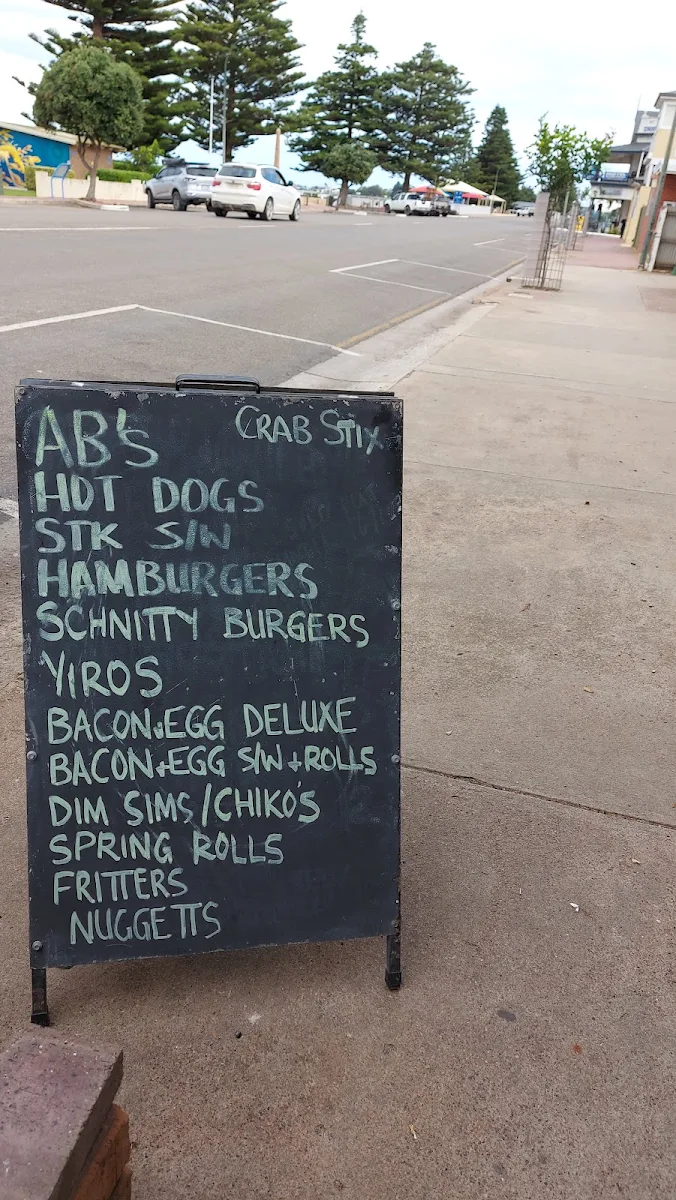 AB's
CRAB STIX
HOT DOGS
STK S/W
HAMBURGERS
SCHNITTY BURGERS
YIROS
BACON+EGG DELUXE
BACON+EGG S/W+ROLLS
DIM SIMS/CHIKO'S
SPRING ROLLS
FRITTERS
NUGGETTS